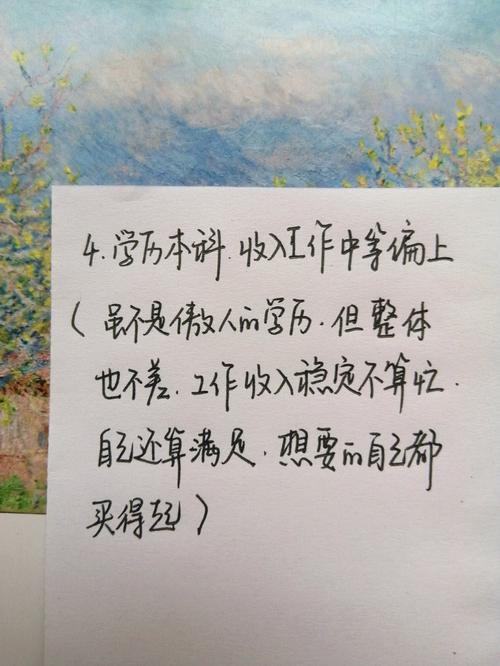 4.学历本科.收入工作中等偏上
(虽不是傲人的学历.但整体
也不差.工作收入稳定不算忙.
自己还算满足.想要的自己都
买得起)